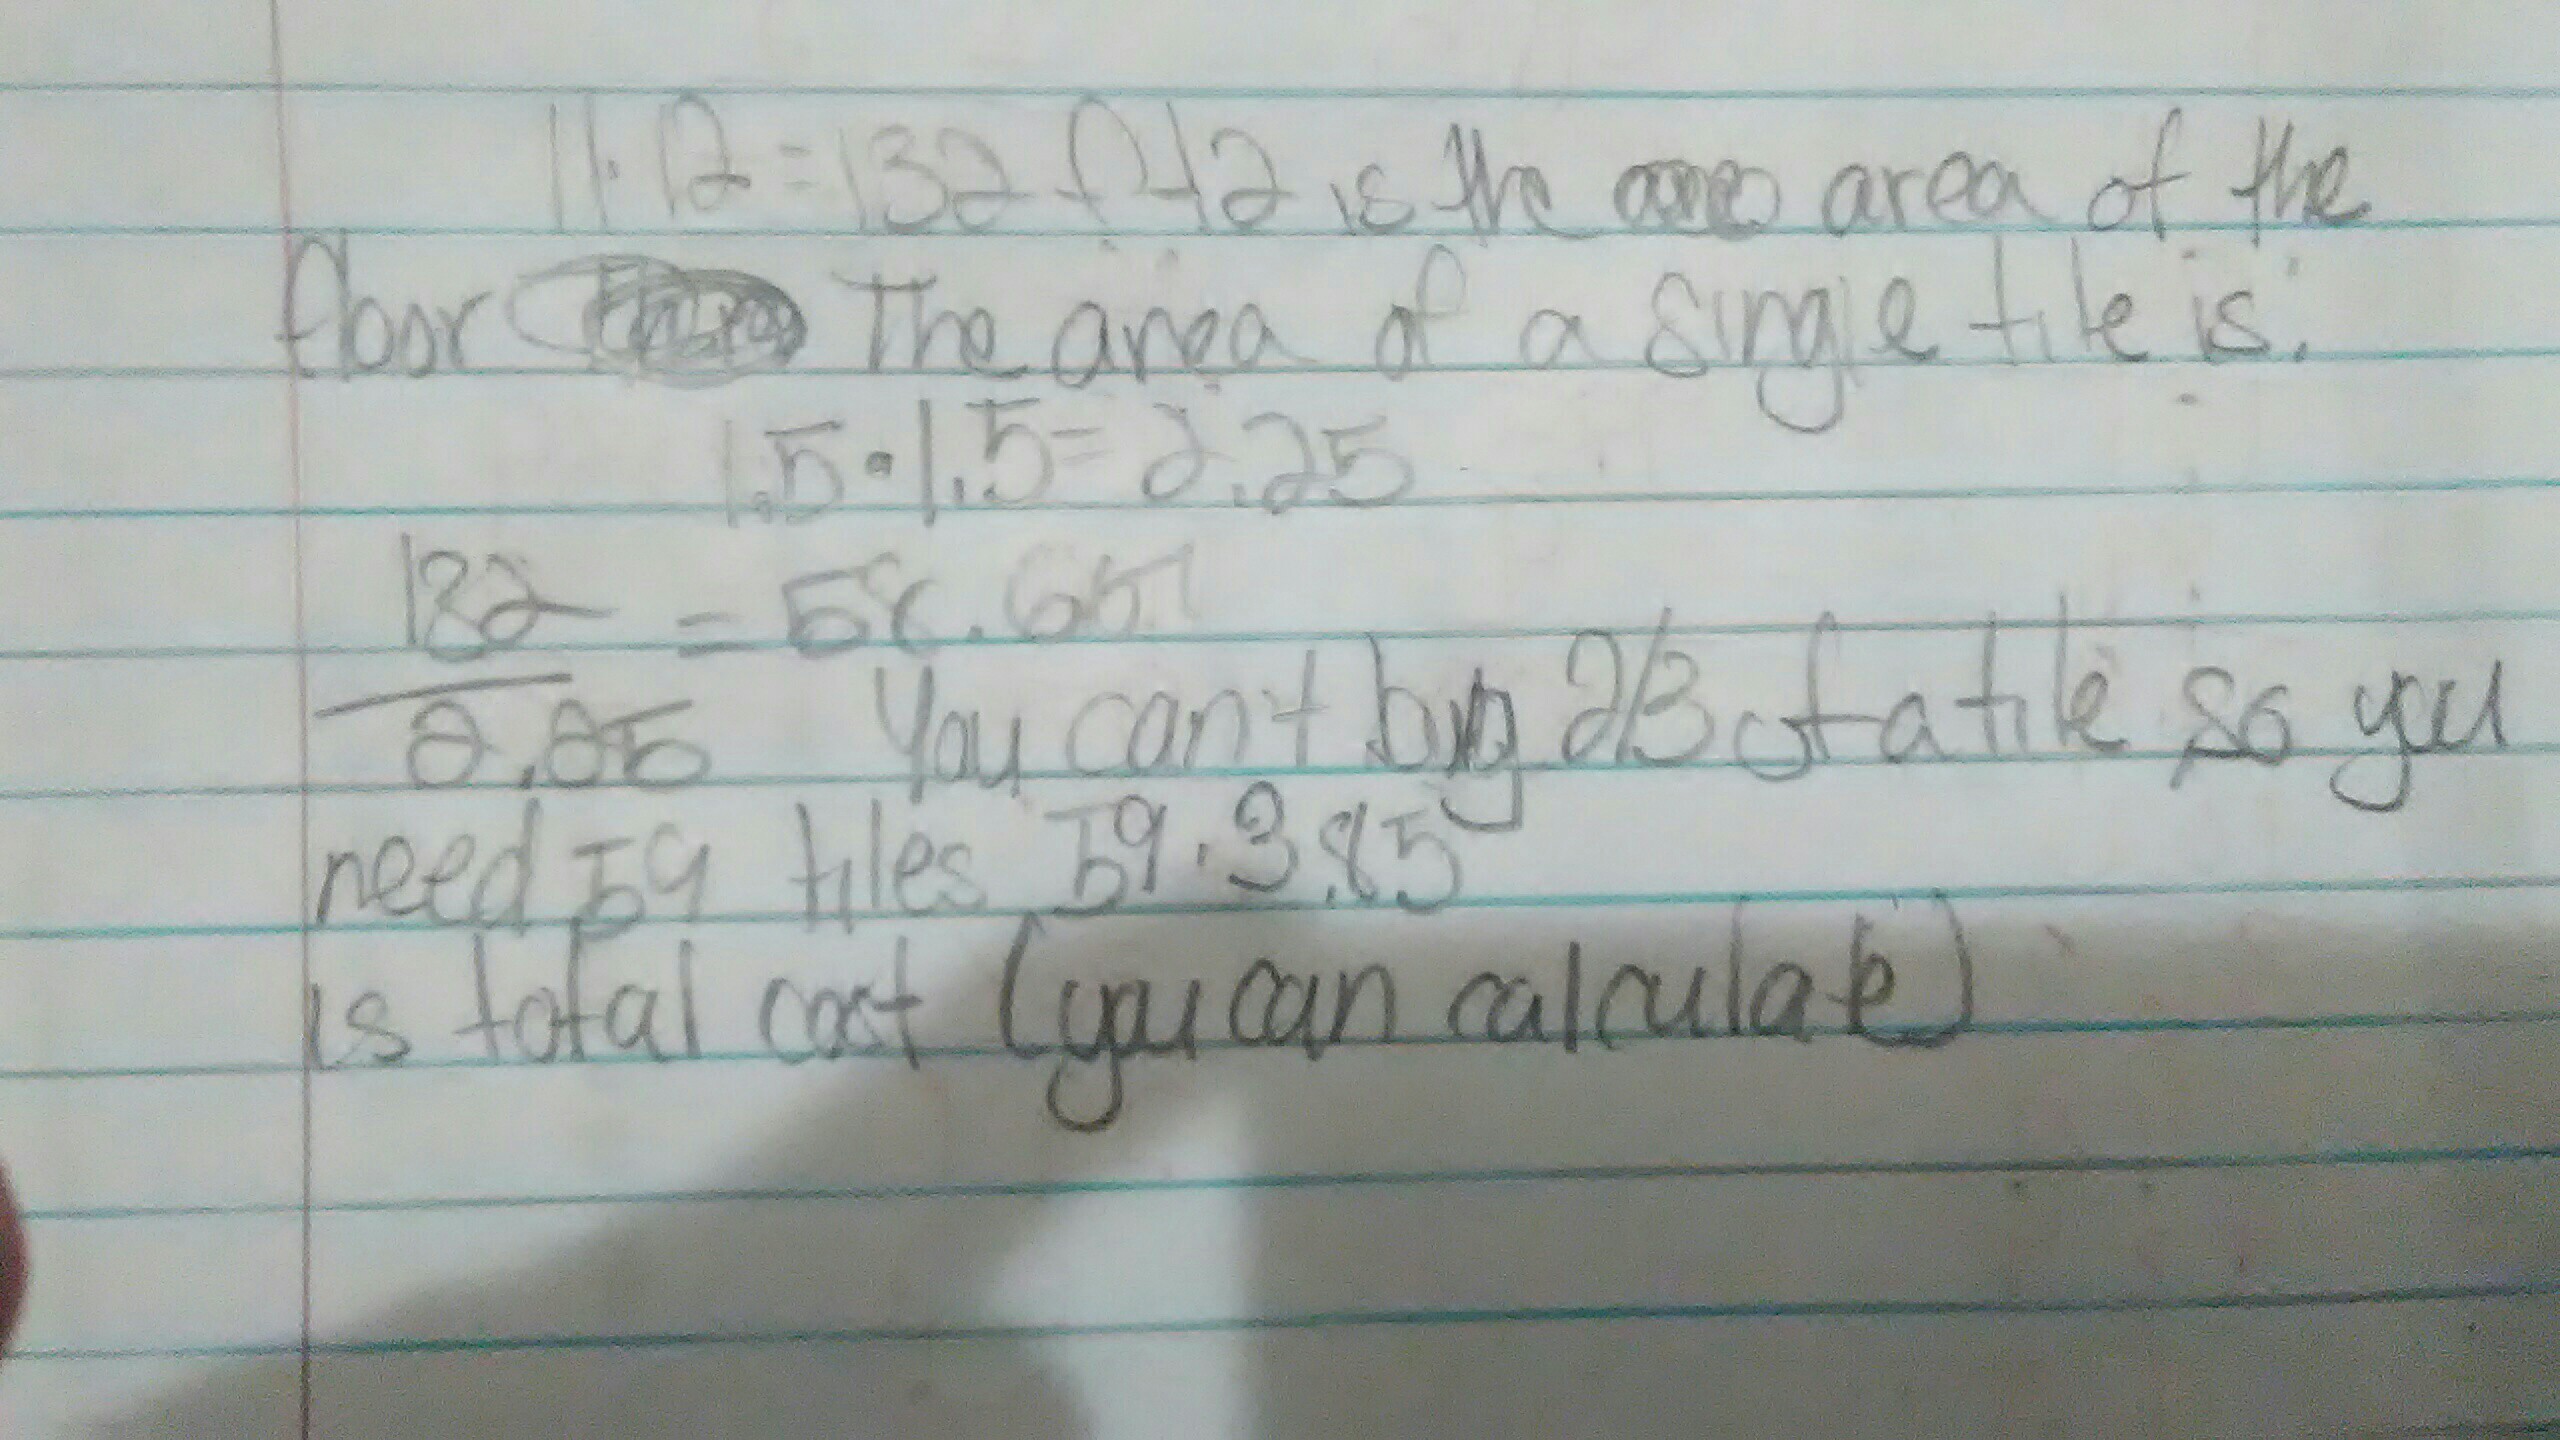 11·12=132 ft2 is the area of the
floor The area of a single tile is.
1.5·1.5=2.25
132 = 58.667
2.25 You can't buy 2/3 of a tile so you
need 59 tiles 59·3.85
is total cost (you can calculate)